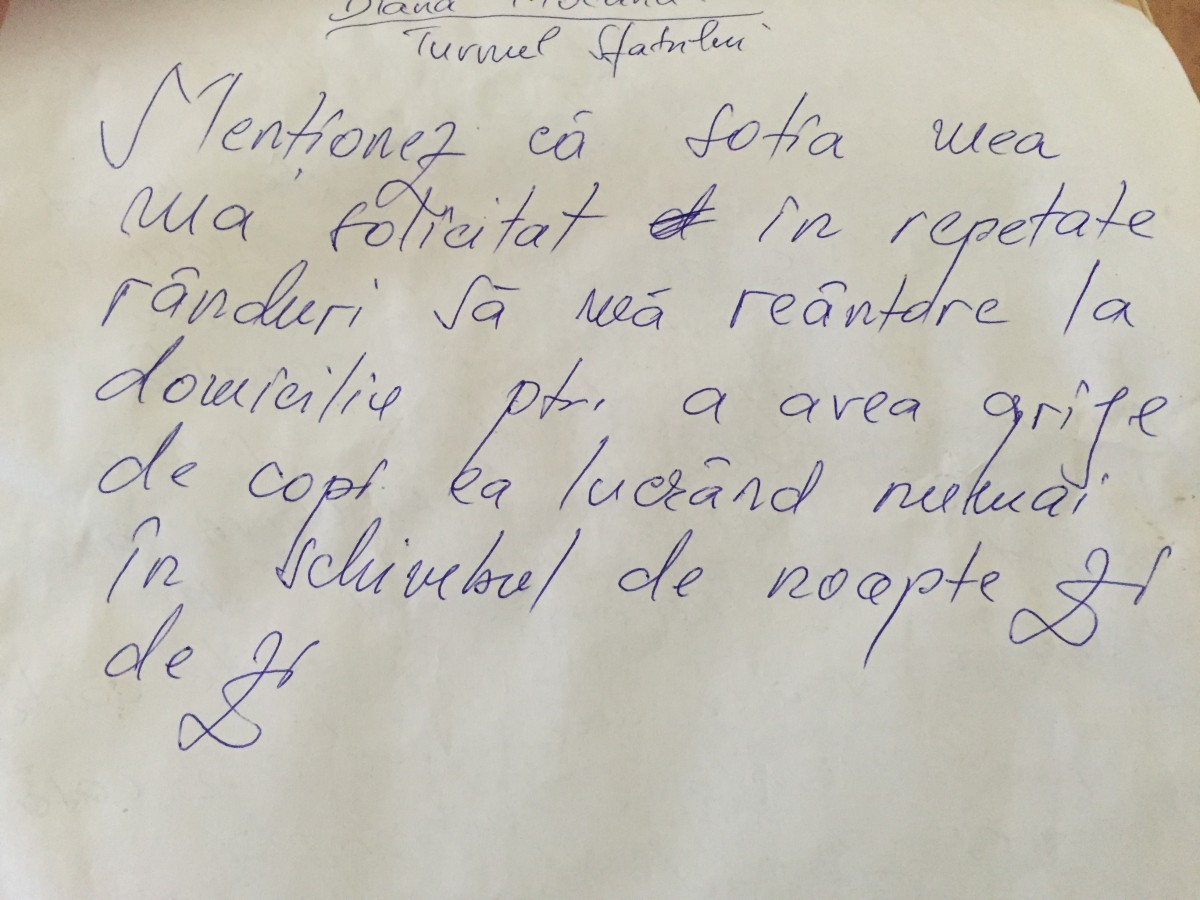 Diana
Turnul Sfatului
Menționez că soția mea
ma solicitat în repetate
rânduri să mă reântorc la
domiciliu ptr. a avea grije
de copi ea lucrând numai
în schimbul de noapte zi
de zi